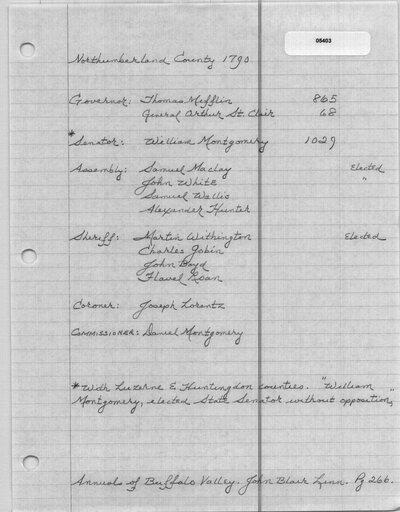 05403
Northumberland County 1790
Governor: Thomas Mefflin 865
General Arthur St. Clair 68
* Senator: William Montgomery 1029
Assembly: Samuel Maclay Elected
John White "
Samuel Wallis
Alexander Hunter
Sheriff: Martin Withington Elected
Charles Gobin
John Boyd
Flavel Roan
Coroner: Joseph Lorentz
Commissioner: Daniel Montgomery
* With Luzerne & Huntingdon counties. "William
Montgomery, elected State Senator without opposition,"
Annuals of Buffalo Valley. John Blair Linn. Pg 266.